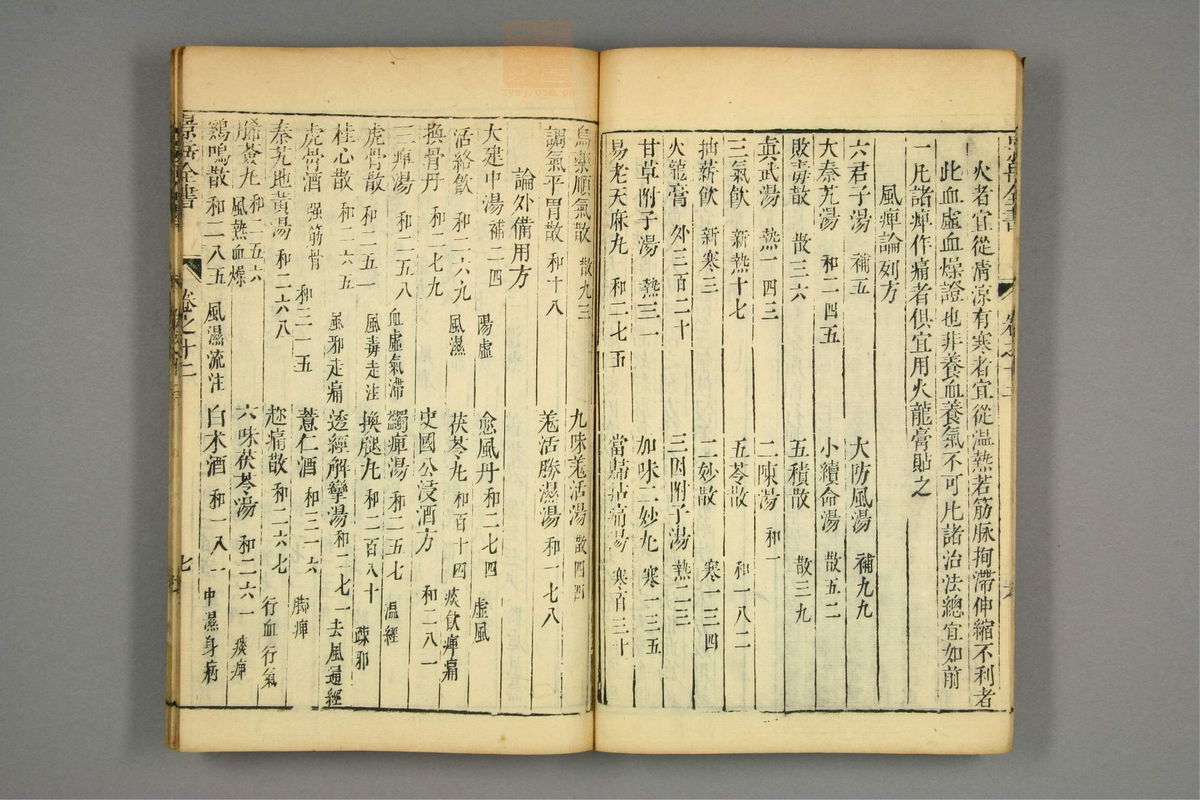 火者宜從清涼有寒者宜從溫熱若筋脉拘滯伸縮不利者
此血虛血燥證也非養血養氣不可凡諸治法總宜如前
一凡諸痺作痛者俱宜用火龍膏貼之
風痺論列方
六君子湯 補五 大防風湯 補九九
大秦艽湯 和二四五 小續命湯 散五二
敗毒散 散三六 五積散 散三九
真武湯 熱一四三 二陳湯 和一
三氣飲 新熱十七 五苓散 和一八二
抽薪飲 新寒三 二妙散 寒一三四
火龍膏 外三百二十 三因附子湯 熱二三
甘草附子湯 熱三一 加味二妙丸 寒一三五
易老天麻丸 和二七五 當歸拈痛湯 寒百三十
景岳全書
烏藥順氣散 散九三 九味羗活湯 散四四
調氣平胃散 和十八 羗活勝濕湯 和一七八
論外備用方
大建中湯 補二四 陽虛 愈風丹 和二七四 虛風
活絡飲 和二六九 風濕 茯苓丸 和百十四 痰飲痺痛
換骨丹 和二七九 史國公浸酒方 和二八一
三痺湯 和二五八 血虛氣滯 蠲痺湯 和二五七 溫經
虎骨散 和一五一 風毒走注 換腿丸 和二百八十 疎邪
桂心散 和二六五 風邪走痛 透經解攣湯 和二七一 去風通經
虎骨酒 強筋骨 和三一五 薏仁酒 和三一六 脚痺
秦艽地黃湯 和二六八 趂痛散 和二六七 行血行氣
和二五六 風熱血燥 六味茯苓湯 和二六一 痰痺
鷄鳴散 和二八五 風濕流注 白术酒 和一八一 中濕身痛
景岳全書 卷之十二 七